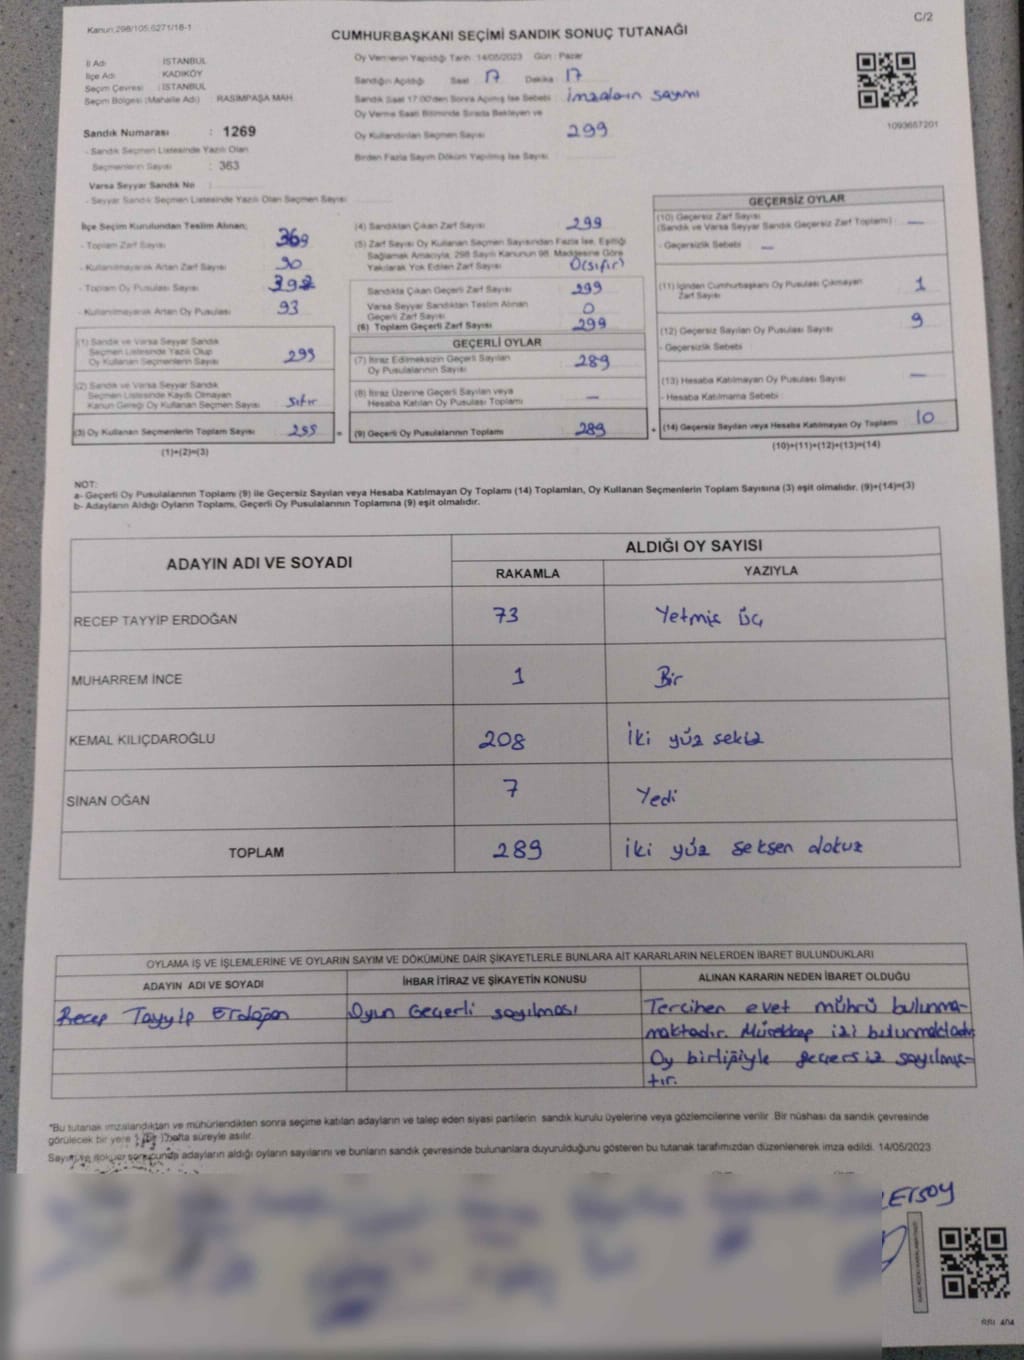 Kanun:298/105,6271/18-1
C/2
CUMHURBAŞKANI SEÇİMİ SANDIK SONUÇ TUTANAĞI
İl Adı : İSTANBUL
İlçe Adı : KADIKÖY
Seçim Çevresi : İSTANBUL
Seçim Bölgesi (Mahalle Adı) RASİMPAŞA MAH.
Sandık Numarası : 1269
- Sandık Seçmen Listesinde Yazılı Olan
Seçmenlerin Sayısı : 363
Varsa Seyyar Sandık No :
- Seyyar Sandık Seçmen Listesinde Yazılı Olan Seçmen Sayısı
Oy Vermenin Yapıldığı Tarih :14/05/2023 Gün : Pazar
Sandığın Açıldığı Saat 17 Dakika : 17
Sandık Saat 17:00'den Sonra Açılmış İse Sebebi : imzaların sayımı
Oy Verme Saati Bitiminde Sırada Bekleyen ve
Oy Kullandırılan Seçmen Sayısı 299
Birden Fazla Sayım Döküm Yapılmış İse Sayısı
1093657201
İlçe Seçim Kurulundan Teslim Alınan;
- Toplam Zarf Sayısı 369
- Kullanılmayarak Artan Zarf Sayısı
- Toplam Oy Pusulası Sayısı
- Kullanılmayarak Artan Oy Pusulası 93
(1) Sandık ve Varsa Seyyar Sandık
Seçmen Listesinde Yazılı Olup
Oy Kullanan Seçmenlerin Sayısı 299
(2) Sandık ve Varsa Seyyar Sandık
Seçmen Listesinde Kayıtlı Olmayan
Kanun Gereği Oy Kullanan Seçmen Sayısı sıfır
(3) Oy Kullanan Seçmenlerin Toplam Sayısı 299 =
(1)+(2)=(3)
(4) Sandıktan Çıkan Zarf Sayısı 299
(5) Zarf Sayısı Oy Kullanan Seçmen Sayısından Fazla İse, Eşitliği
Sağlamak Amacıyla, 298 Sayılı Kanunun 98. Maddesine Göre
Yakılarak Yok Edilen Zarf Sayısı 0(sıfır)
Sandıkta Çıkan Geçerli Zarf Sayısı 299
Varsa Seyyar Sandıktan Teslim Alınan
Geçerli Zarf Sayısı 0
(6) Toplam Geçerli Zarf Sayısı 299
GEÇERLİ OYLAR
(7) İtiraz Edilmeksizin Geçerli Sayılan
Oy Pusulalarının Sayısı 289
(8) İtiraz Üzerine Geçerli Sayılan veya
Hesaba Katılan Oy Pusulası Toplamı —
(9) Geçerli Oy Pusulalarının Toplamı 289 +
GEÇERSİZ OYLAR
(10) Geçersiz Zarf Sayısı
(Sandık ve Varsa Seyyar Sandık Geçersiz Zarf Toplamı) —
- Geçersizlik Sebebi —
(11) İçinden Cumhurbaşkanı Oy Pusulası Çıkmayan
Zarf Sayısı 1
(12) Geçersiz Sayılan Oy Pusulası Sayısı 9
- Geçersizlik Sebebi
(13) Hesaba Katılmayan Oy Pusulası Sayısı —
- Hesaba Katılmama Sebebi
(14) Geçersiz Sayılan veya Hesaba Katılmayan Oy Toplamı 10
(10)+(11)+(12)+(13)=(14)
NOT:
a- Geçerli Oy Pusulalarının Toplamı (9) ile Geçersiz Sayılan veya Hesaba Katılmayan Oy Toplamı (14) Toplamları, Oy Kullanan Seçmenlerin Toplam Sayısına (3) eşit olmalıdır. (9)+(14)=(3)
b- Adayların Aldığı Oyların Toplamı, Geçerli Oy Pusulalarının Toplamına (9) eşit olmalıdır.
ADAYIN ADI VE SOYADI
ALDIĞI OY SAYISI
RAKAMLA YAZIYLA
RECEP TAYYİP ERDOĞAN 73 Yetmiş üç
MUHARREM İNCE 1 Bir
KEMAL KILIÇDAROĞLU 208 İki yüz sekiz
SİNAN OĞAN 7 Yedi
TOPLAM 289 İki yüz seksen dokuz
OYLAMA İŞ VE İŞLEMLERİNE VE OYLARIN SAYIM VE DÖKÜMÜNE DAİR ŞİKAYETLERLE BUNLARA AİT KARARLARIN NELERDEN İBARET BULUNDUKLARI
ADAYIN ADI VE SOYADI İHBAR İTİRAZ VE ŞİKAYETİN KONUSU ALINAN KARARIN NEDEN İBARET OLDUĞU
Recep Tayyip Erdoğan Oyun Geçerli sayılması Tercihen evet mührü bulunma-
maktadır. Mürekkep izi bulunmaktadır
Oy birliğiyle geçersiz sayılmış-
tır.
*Bu tutanak imzalandıktan ve mühürlendikten sonra seçime katılan adayların ve talep eden siyasi partilerin sandık kurulu üyelerine veya gözlemcilerine verilir. Bir nüshası da sandık çevresinde
görülecek bir yere 1 (Bir) hafta süreyle asılır.
Sayım ve döküm sonucunda adayların aldığı oyların sayılarını ve bunların sandık çevresinde bulunanlara duyurulduğunu gösteren bu tutanak tarafımızdan düzenlenerek imza edildi. 14/05/2023
ERSOY